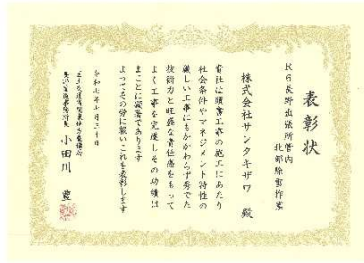 表彰状
R6長野出張所管内
北部除雪作業
株式会社サンタキザワ 殿
貴社は頭書工事の施工にあたり
社会条件やマネジメント特性の
厳しい工事にもかかわらず秀でた
技術力と旺盛な責任感をもって
よく工事を完成しその功績は
まことに顕著であります
よってその労に報いこれを表彰します
令和七年七月三十日
国土交通省関東地方整備局
長野国道事務所長 小田川 豊